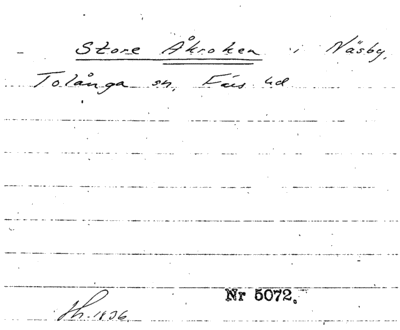 Store Åkroken i Näsby,
Tolånga sn, Färs hd
Nr 5072.
1806